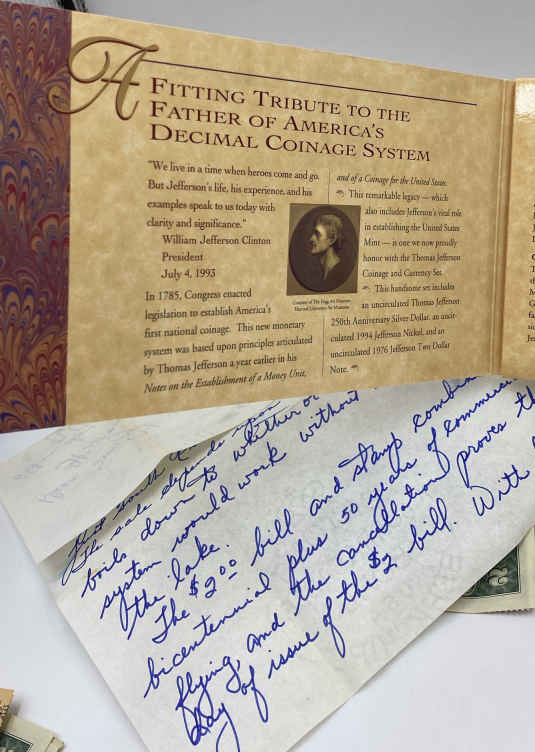 A FITTING TRIBUTE TO THE
FATHER OF AMERICA'S
DECIMAL COINAGE SYSTEM
"We live in a time when heroes come and go.
But Jefferson's life, his experience, and his
examples speak to us today with
clarity and significance."
William Jefferson Clinton
President
July 4, 1993
In 1785, Congress enacted
legislation to establish America's
first national coinage. This new monetary
system was based upon principles articulated
by Thomas Jefferson a year earlier in his
Notes on the Establishment of a Money Unit,
and of a Coinage for the United States.
This remarkable legacy — which
also includes Jefferson's vital role
in establishing the United States
Mint — is one we now proudly
honor with the Thomas Jefferson
Coinage and Currency Set.
This handsome set includes
an uncirculated Thomas Jefferson
250th Anniversary Silver Dollar, an uncir-
culated 1994 Jefferson Nickel, and an
uncirculated 1976 Jefferson Two Dollar
Note.
Courtesy of The Fogg Art Museum
Harvard University Art Museums
that south
The sale depends upon
boils down to whither or
system would work without
the lake.
The $2.00 bill and stamp
bicentennial plus 50 years of
flying, and the cancellation proves
day of issue of the $2 bill. With
2